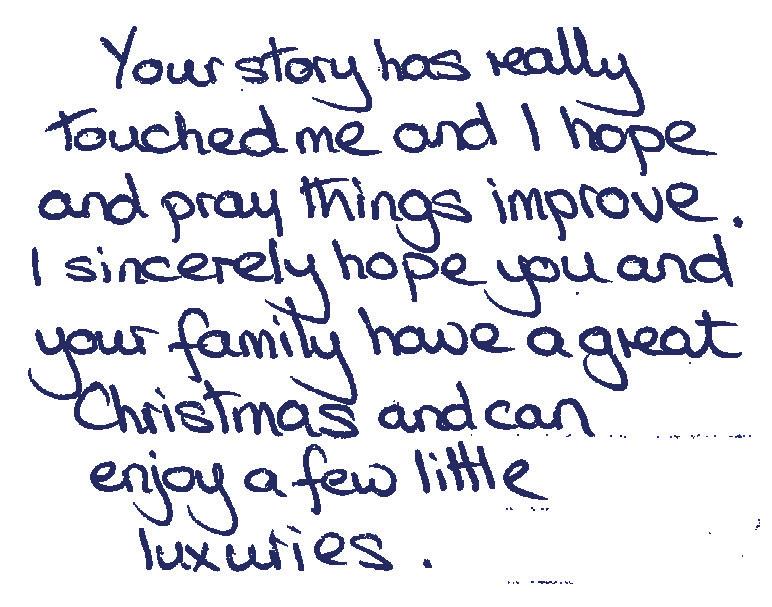 Your story has really
touched me and I hope
and pray things improve.
I sincerely hope you and
your family have a great
Christmas and can
enjoy a few little
luxuries.